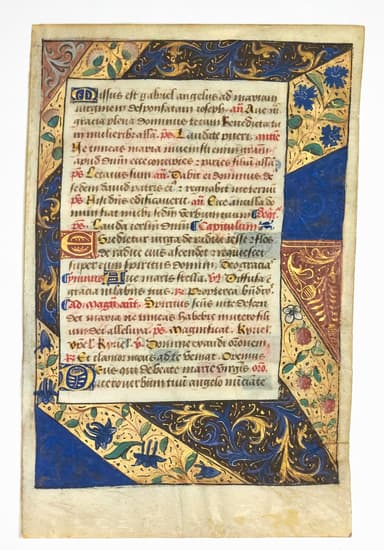 Missus est gabriel angelus ad mariam
virginem desponsatam ioseph. an̄ Aue m̄
gracia plena dominus tecum benedicta tu
in mulierib alla. ps Laudate pueri.
Ne timeas maria inuenisti enim gram̄
apud dn̄um ecce concipies & paries filiū alla
ps Letatus sum an̄ Dabit ei dominus
sedem dauid patris ei & regnabit ineternū
ps Nisi dn̄s edificauerit. an̄ Ecce ancilla do
mini fiat michi scdm verbum tuum
ps Lauda ierlm Dn̄m Capitulum
Egredietur virga de radice iesse & flos
de radice eius ascendet & requiescet
super eum spiritus domini Deo gracia
Ymnus Aue maris stella. v̄ Diffusa ē
gracia in labiis tuis R Propterea
Ad an̄ Spiritus scūs in te descen
det maria ne timeas habebis in utero fili
um dei alleluya. ps Magnificat. Kyriel
xpel Kyriel v̄ Domine exaudi oronem
R Et clamor meus ad te veniat Oremus
Deus qui de beate marie virgīs oro
vtero verbum tuum angelo